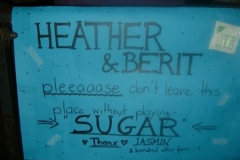 HEATHER
& BERIT
pleeaaase don't leave this
place without playing
"SUGAR"
Thanx JASMIN